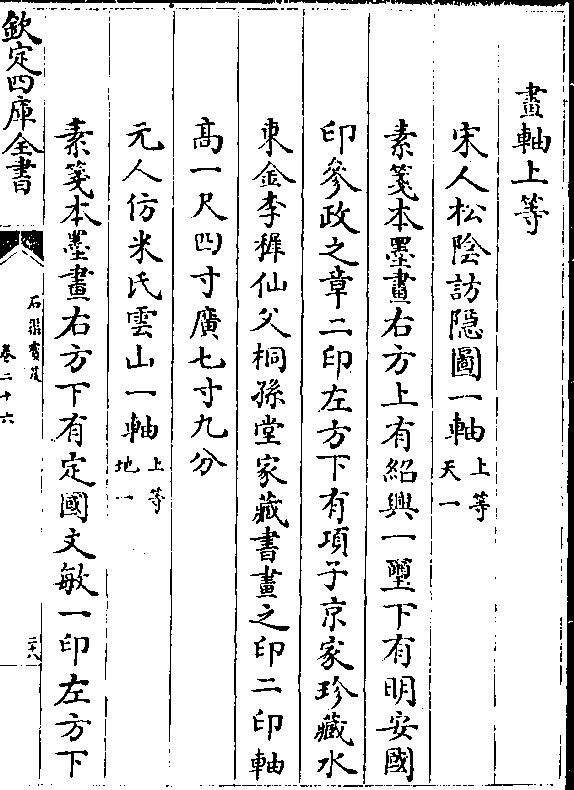 畫軸上等
宋人松陰訪隱圖一軸 上等 天一
素箋本墨畫右方上有紹興一璽下有明安國
印參政之章二印左方下有項子京家珍藏水
東金李穉仙父桐孫堂家藏書畫之印二印軸
高一尺四寸廣七寸九分
元人仿米氏雲山一軸 上等 地一
素箋本墨畫右方下有定國文敏一印左方下
欽定四庫全書
石渠寶笈
卷二十六